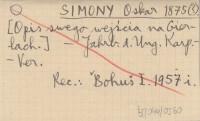 SIMONY Oskar 1875 (?)
[Opis swego wejścia na Gier-
lach.] - Jahrb. d. Ung. Karp.-
- Ver.
Rec.: Bohuš I. 1957 i.